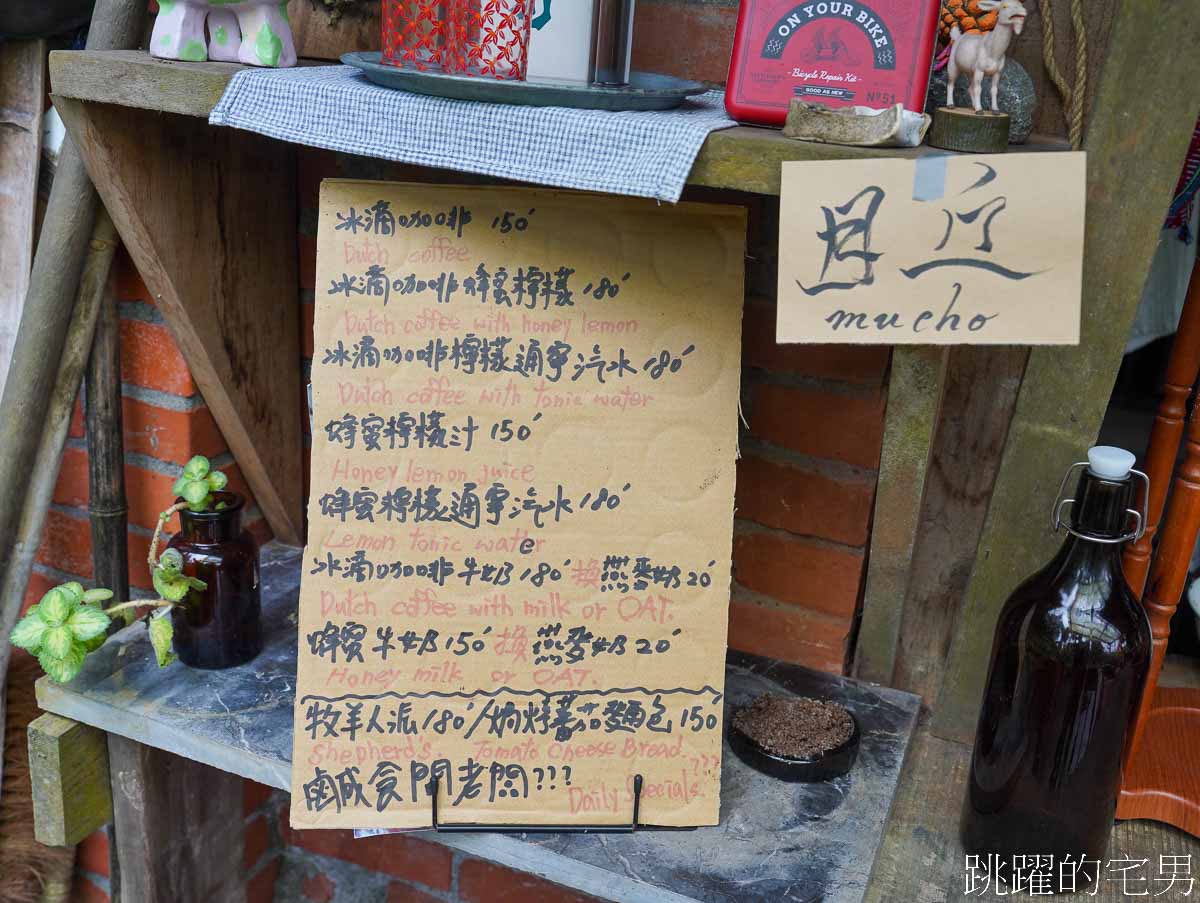 ON YOUR BIKE
Bicycle Repair Kit
GOOD AS NEW
Nº51
mucho
冰滴咖啡 150
Dutch coffee
冰滴咖啡蜂蜜檸檬 180
Dutch coffee with honey lemon
冰滴咖啡檸檬通寧汽水 180
Dutch coffee with tonic water
蜂蜜檸檬汁 150
Honey lemon juice
蜂蜜檸檬通寧汽水 180
Lemon tonic water
冰滴咖啡牛奶 180 換燕麥奶 20
Dutch coffee with milk or OAT.
蜂蜜牛奶 150 換燕麥奶 20
Honey milk or OAT.
牧羊人派 180/焗烤蕃茄麵包 150
Shepherd's. Tomato Cheese Bread.
鹹食問老闆???
Daily Specials.???
跳躍的宅男